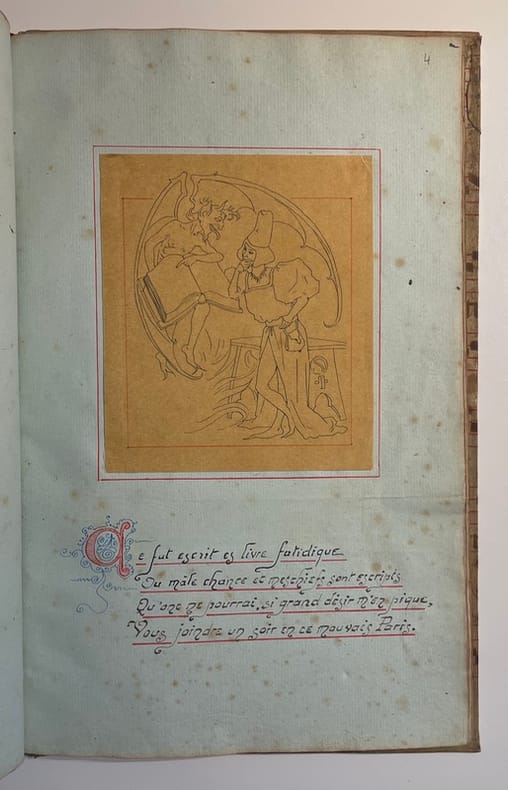 4
Ce fut escrit es livre fatidique
Ou mâle chance et meschiefs sont escripts
Qu'onc ne pourrai, si grand désir m'en pique,
Vous joindre un soir en ce mauvais Paris.